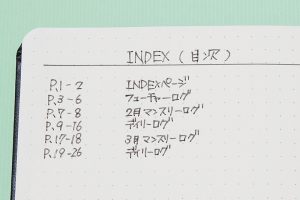 INDEX（目次）
P.1-2 INDEXページ
P.3-6 フューチャーログ
P.7-8 2月マンスリーログ
P.9-16 デイリーログ
P.17-18 3月マンスリーログ
P.19-26 デイリーログ